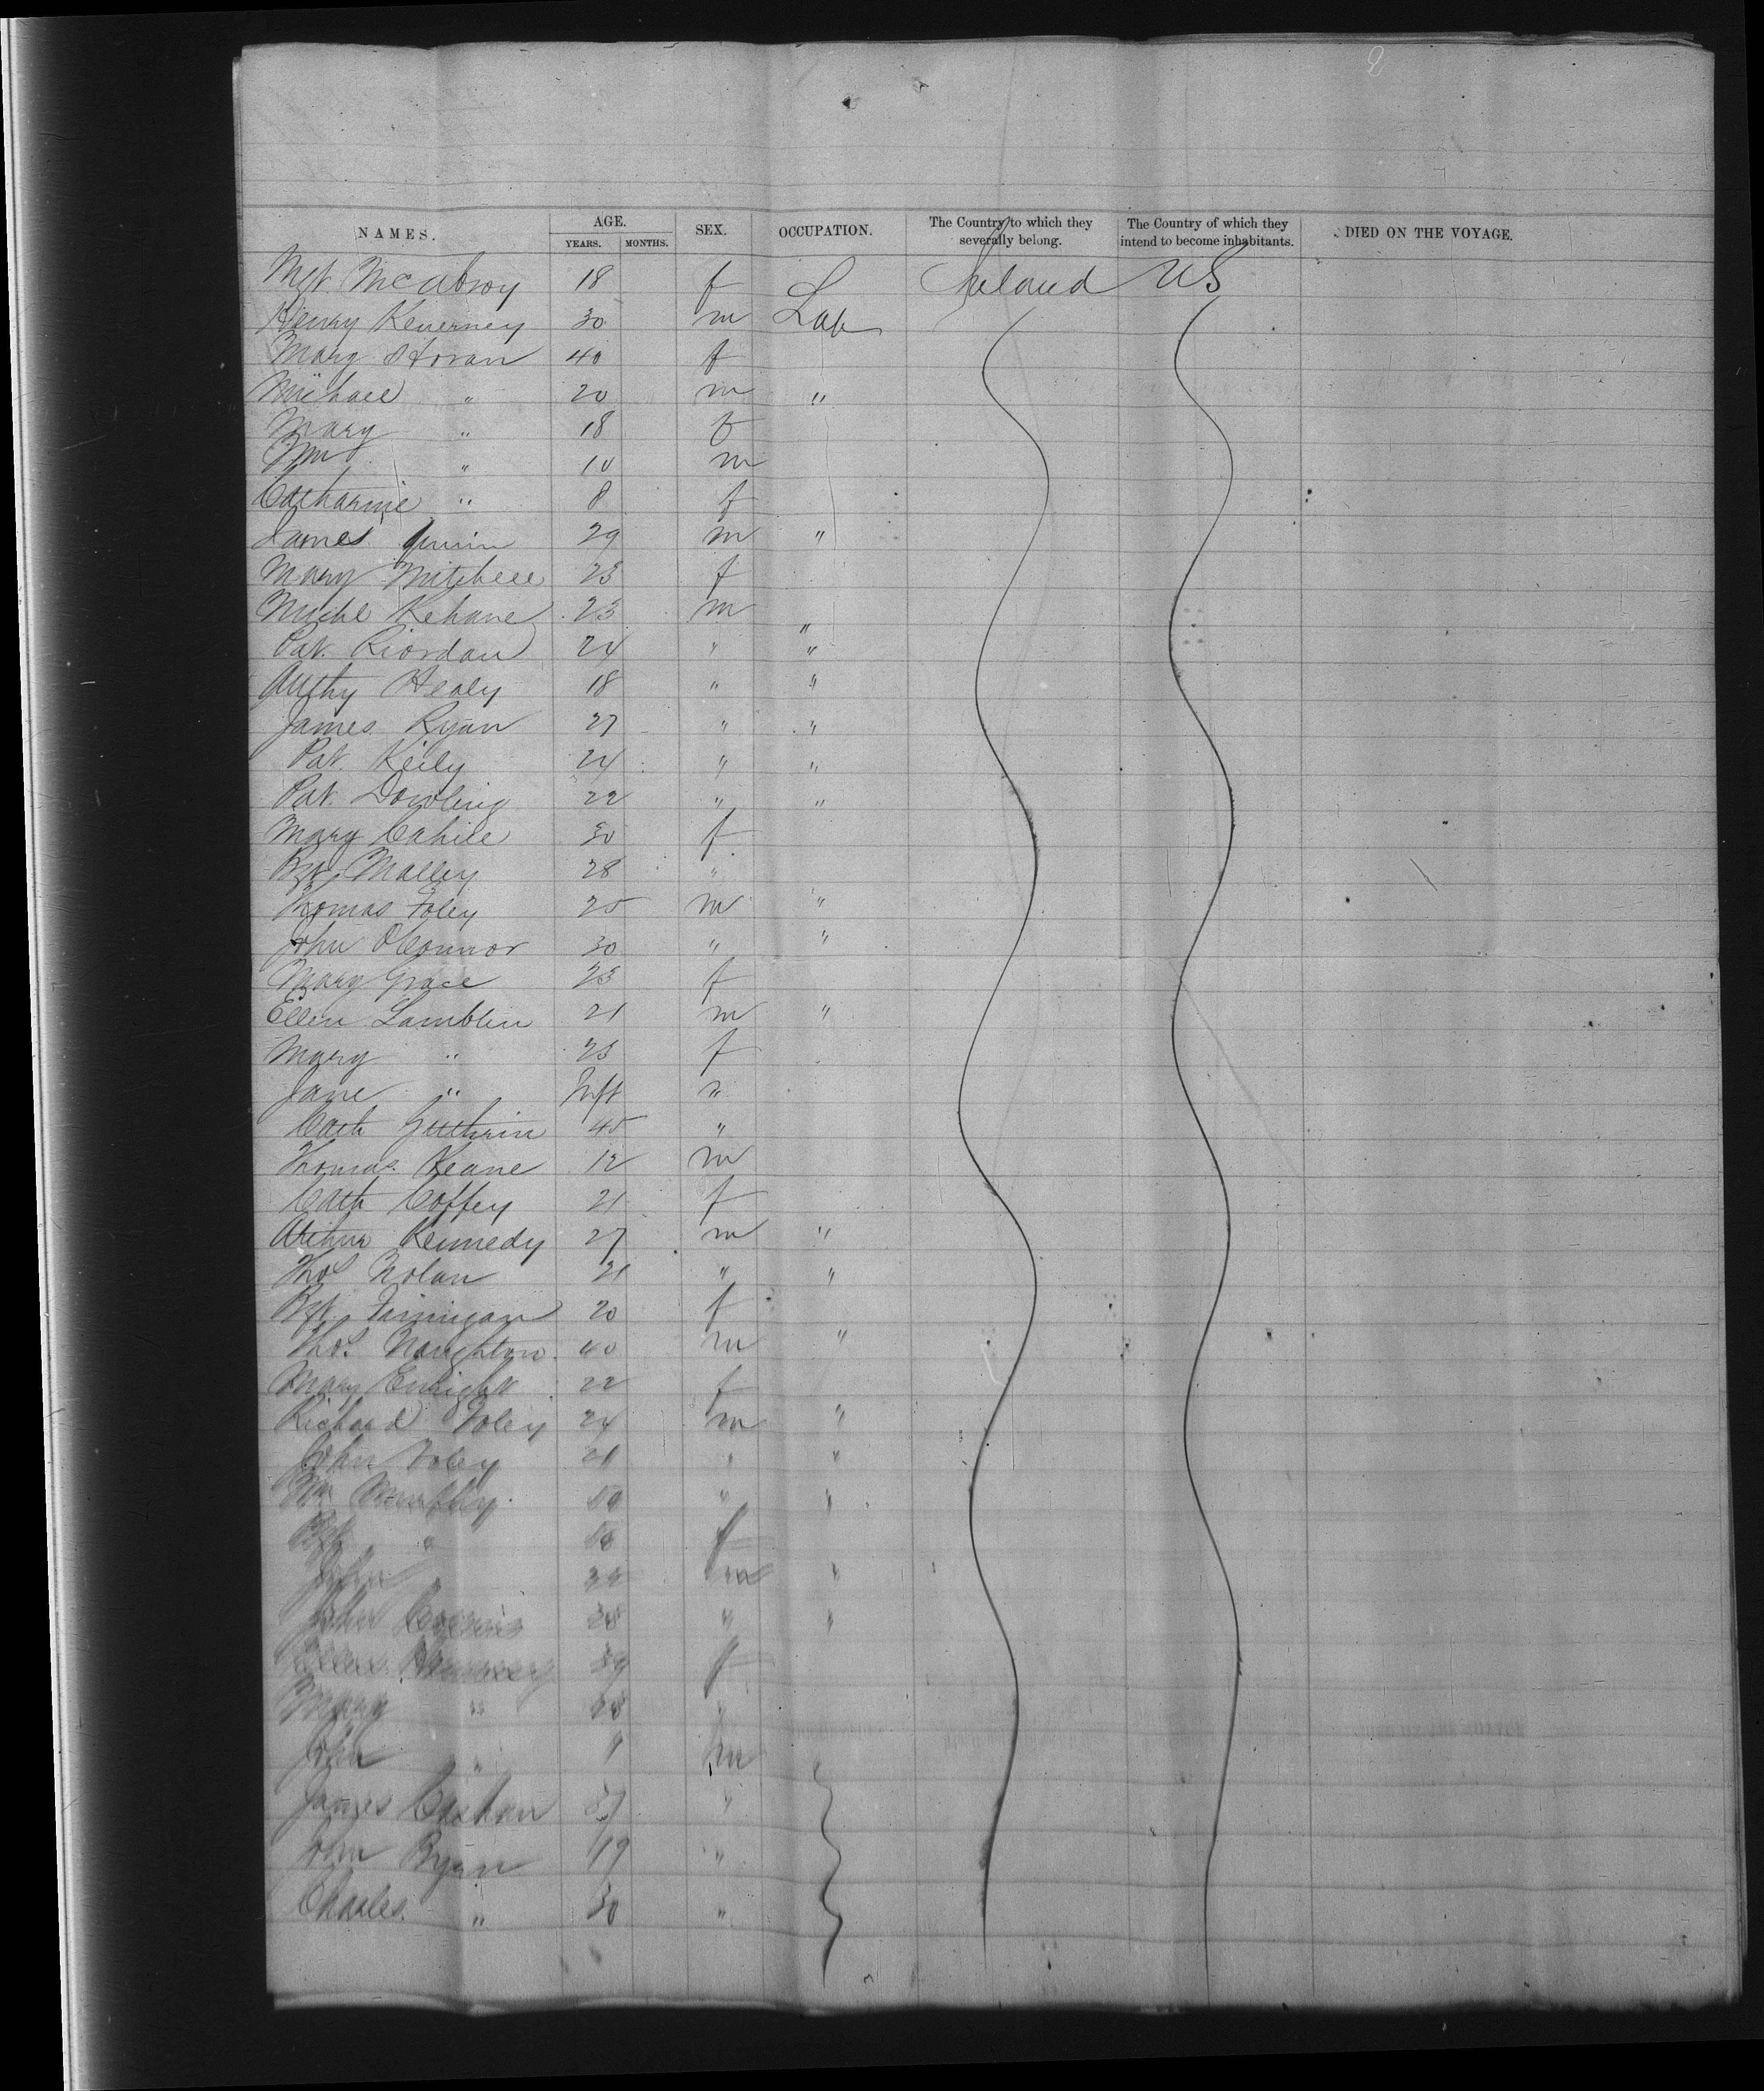 2
NAMES. AGE. SEX. OCCUPATION. The Country to which they severally belong. The Country of which they intend to become inhabitants. DIED ON THE VOYAGE.
YEARS. MONTHS.
Mgt. 18 f Ireland US
Henry Keverney 30 m Lab
Mary Horan 40 f
Michael " 20 m "
Mary " 18 f
Wm " 10 m
Catharine " 8 f
James Quinn 29 m "
Mary Mitchell 23 f
Michl Kehane 23 m "
Pat. Riordan 24 " "
Healy 18 " "
James Ryan 27 " "
Pat. Keily 24 " "
Pat. Dowling 22 " "
Mary Cahill 30 f
Bgt. Malley 28 "
Thomas Foley 25 m "
John OConnor 30 " "
Mary Grace 23 f
Ellen Lamblin 21 m "
Mary " 23 f
Jane " Inft "
Cath Guthrin 45 "
Thomas Keane 12 m
Cath Coffey 21 f
Arthur Kennedy 27 m "
Thos Nolan 21 " "
Bgt. Finnigan 20 f
Thos. Naughton 40 m "
Mary Enright 22 f
Richard Foley 24 m "
John Foley 21 " "
Wm Murphy 50 " "
Bgt " f
John " m "
John " "
Ellen f
Mary " "
John " m
James "
John Ryan 19 "
Charles " 30 "